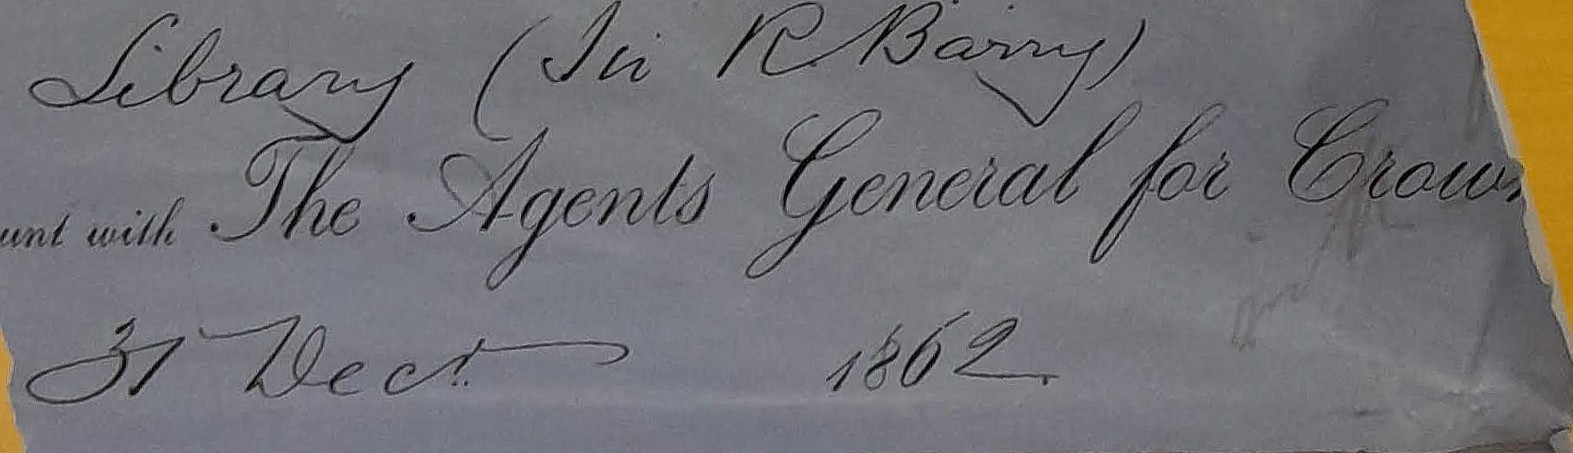 Library (Sir R Barry)
unt with The Agents General for Crown
31 Decr. 1862